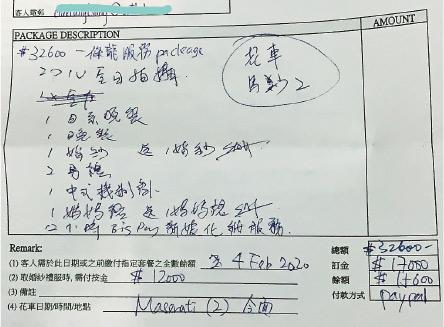 客人電郵
PACKAGE DESCRIPTION AMOUNT
#32600 一條龍服務 package
花車
2
全日拍攝
1 日系晚裝
1 晚裝
1 婚紗 送 1 婚紗
2 男禮
1 中式裙褂
1 媽媽 送 1 媽媽
12 小時 Big Day 新娘化妝服務.
Remark:
(1) 客人需於此日期或之前繳付指定套餐之全數餘額 4 Feb 2020
(2) 取婚紗禮服時, 需付按金 $ 12000
(3) 備註
(4) 花車日期/時間/地點 Maserati (2)
總額 $32600-
訂金 $17000
餘額 $15600
付款方式 paypal